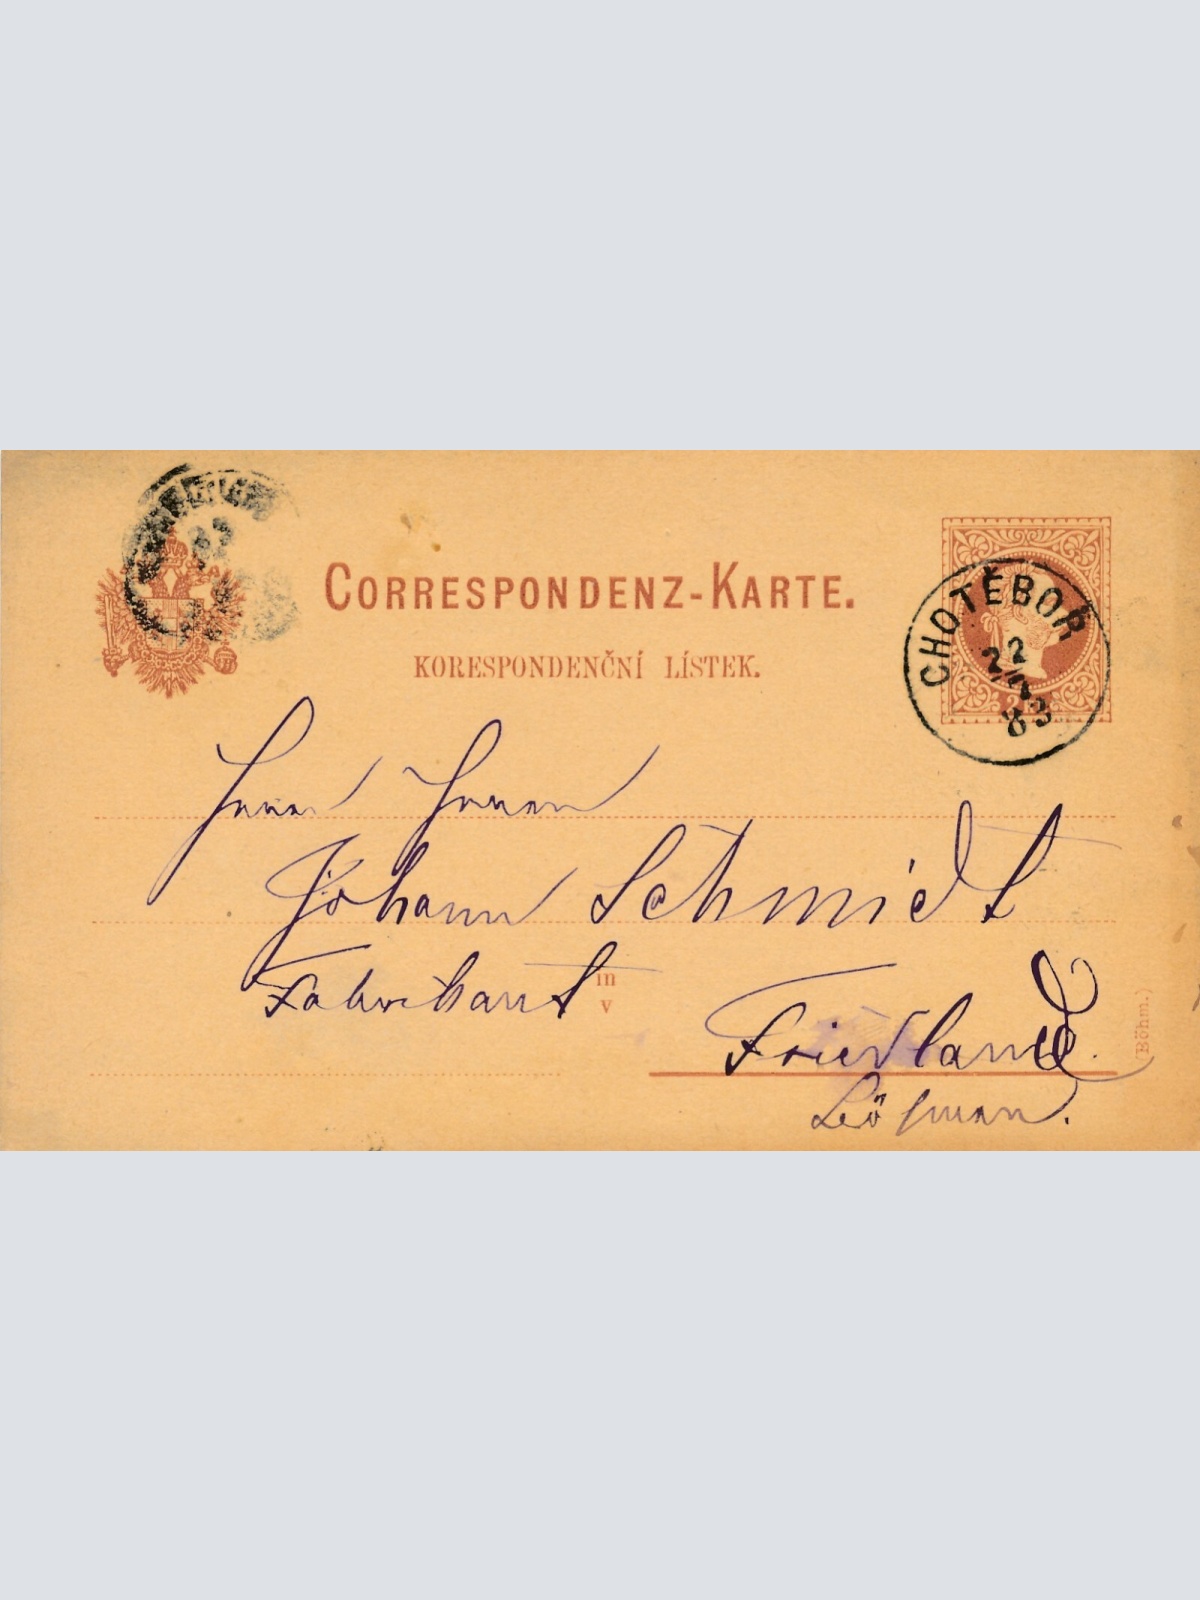 CORRESPONDENZ-KARTE.
KORESPONDENČNÍ LÍSTEK.
CHOTĚBOŘ
22
83
2 Kr
Herrn Herrn
Johann Schmidt
Fabrikant
in
v
Friedland.
Böhmen.
(Böhm.)